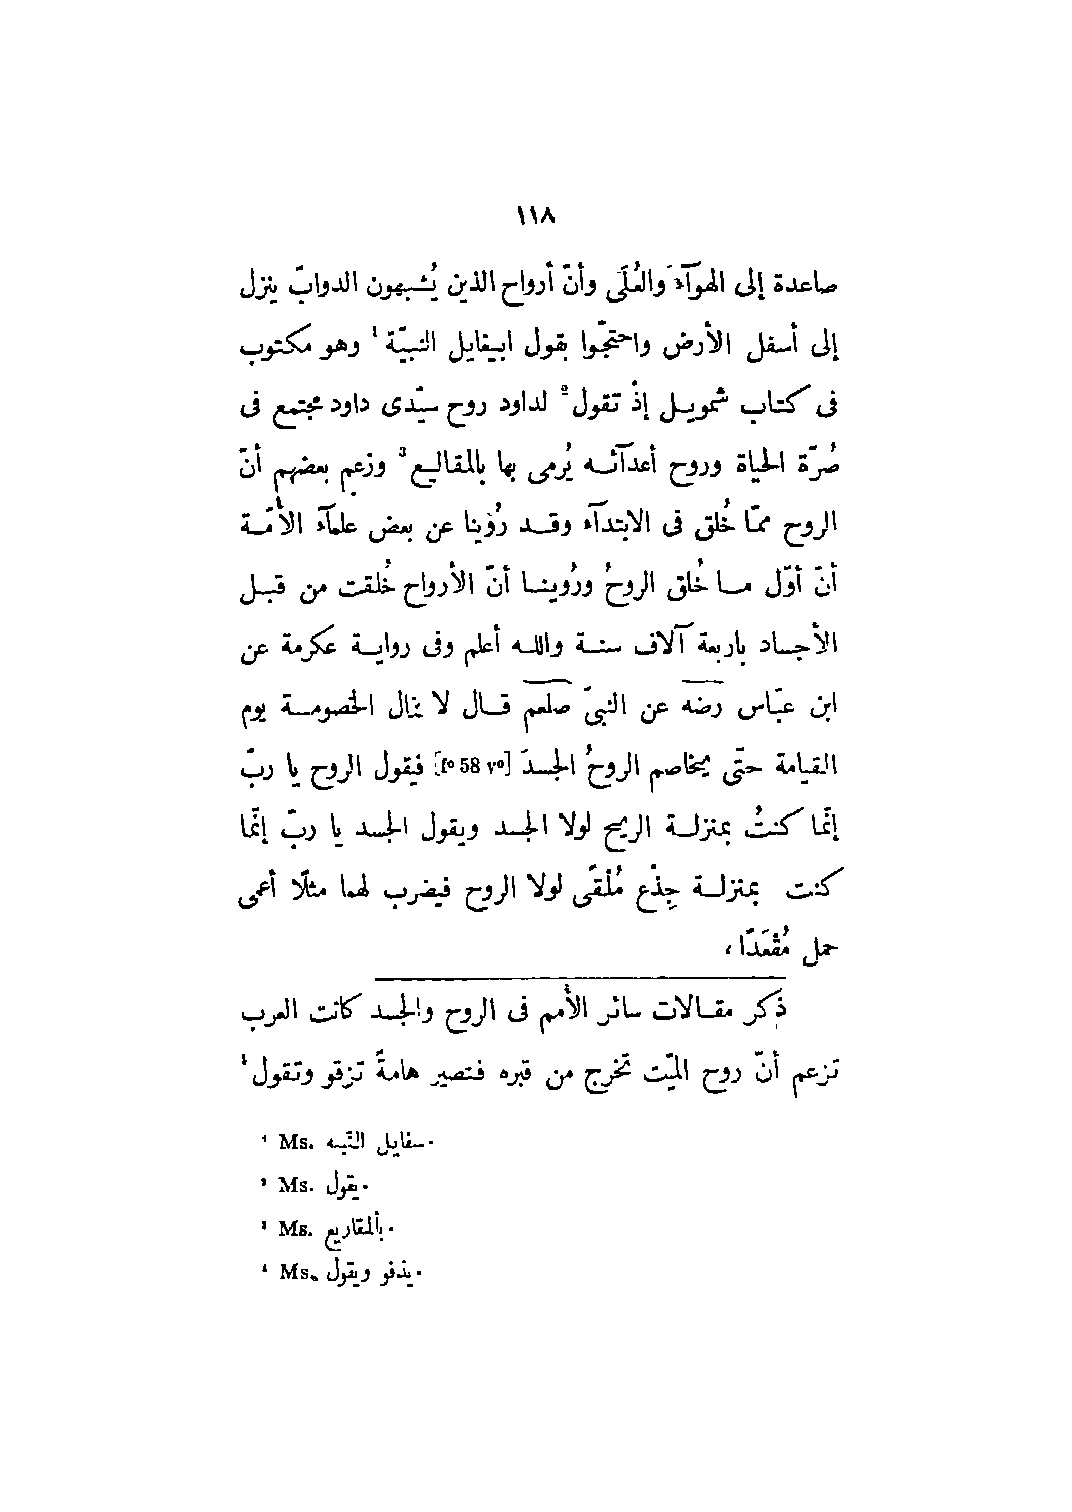 ١١٨
صاعدة إلى الهوآء والعُلَى وأنّ أرواح الذين يُشبهون الدوابّ ينزل
إلى أسفل الأرض واحتجّوا بقول ابيغايل النبيّة ¹ وهو مكتوب
فى كتاب شمويل إذْ تقول ² لداود روح سيّدى داود مجتمع فى
صُرّة الحياة وروح أعدآئه يُرمى بها بالمقاليع ³ وزعم بعضهم أنّ
الروح ممّا خُلق فى الابتدآء وقد رُؤينا عن بعض علمآء الأُمّة
أنّ أوّل ما خُلق الروحُ ورُوينا أنّ الأرواح خُلقت من قبل
الأجساد بأربعة آلاف سنة والله أعلم وفى رواية عكرمة عن
ابن عبّاس رضه عن النبىّ صلعم قال لا تنال الخصومة يوم
القيامة حتّى يخاصم الروحُ الجسدَ [fº 58 vº] فيقول الروح يا ربّ
إنّما كنتُ بمنزلة الريح لولا الجسد ويقول الجسد يا ربّ إنّما
كنت بمنزلة جِذْع مُلْقًى لولا الروح فيضرب لهما مثلًا أعمى
حمل مُقْعَدًا ،
ذِكر مقالات سائر الأُمم فى الروح والجسد كانت العرب
تزعم أنّ روح الميّت تخرج من قبره فتصير هامةً تزقو وتقول ⁴
¹ Ms. سفايل النّبه.
² Ms. يقول.
³ Ms. بألمقاريع.
⁴ Ms. يذفو ويقول.